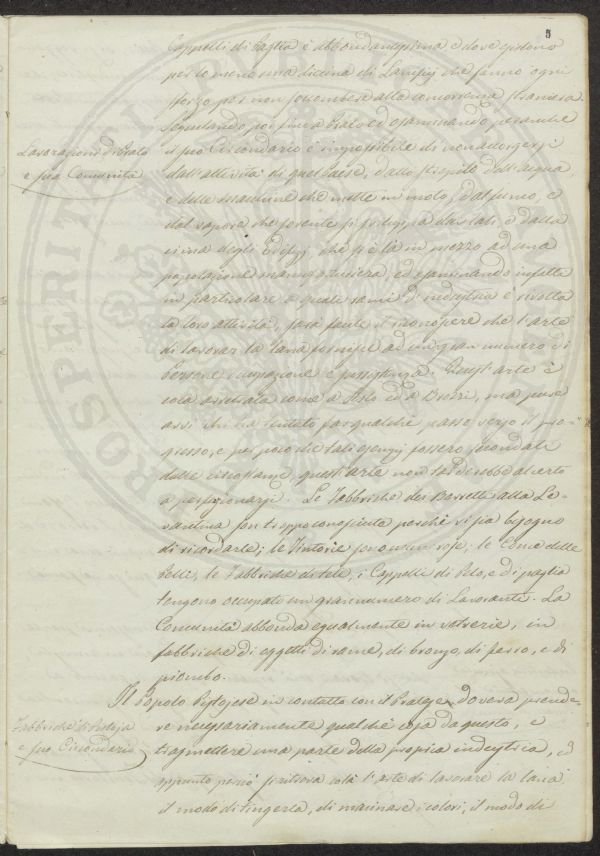 5
Cappelli di Paglia è abbondantissima e dove esistono
per lo meno una diecina di Lanifizj che fanno ogni
sforzo per non soccombere alla concorrenza straniera.
Lavorazioni di Prato
e sua Comunità
Scendendo poi fino a Prato ed esaminando pur anche
il suo Circondario è impossibile di non accorgersi
dall'attività di quel paese, dallo strepito dell'acqua,
e delle macchine che mette in moto, dal fumo, e
del vapore che sovente si sviluppa dai lati, e dalla
cima degli Edifizj, che si è là in mezzo ad una
popolazione manifatturiera, ed esaminando infatti
in particolare a quale rami d'industria è rivolta
la loro attività, sarà facile il conoscere che l'arte
di lavorar la lana fornisce ad un gran numero di
Persone occupazione e sussistenza. Quest'arte è
colà arretrata come a e a, ma pure
assi chi ha tentato far qualche passo verso il pro-
gresso, e per poco che tali esempj fossero secondati
dalle circostanze, quest'arte non tarderebbe al certo
a perfezionarsi. Le Fabbriche dei Berretti alla Le-
vantina son troppo conosciute perchè vi sia bisogno
di ricordarle; le Tintorie sono numerose; le Concia delle
Pelli, le Fabbriche di tele, i Cappelli di Pelo, e di paglia
tengono occupato un gran numero di Lavoranti. La
Comunità abbonda egualmente in vetrerie, in
fabbriche di oggetti di rame, di bronzo, di ferro, e di
piombo.
Fabbriche di Pistoja
e suo Circondario
Il Popolo Pistojese in contatto con il Pratese, doveva prende-
re necessariamente qualche cosa da questo, e
trasmettere una parte della propria industria, ed
appunto perciò si ritrova colà l'arte di lavorare la lana
il modo di tingerla, di marinare i colori, il modo di
PROSPERITATI PUBLICAE